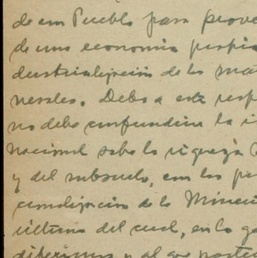 de un Pueblo para prove
de una economía propia
dustrialización de las ma
nerales. Debo a este resp
no debe confundirse la i
nacional sobre la riqueza
y del subsuelo, con las
canalización de la Minerí
última del cual, en lo
diferimos y al